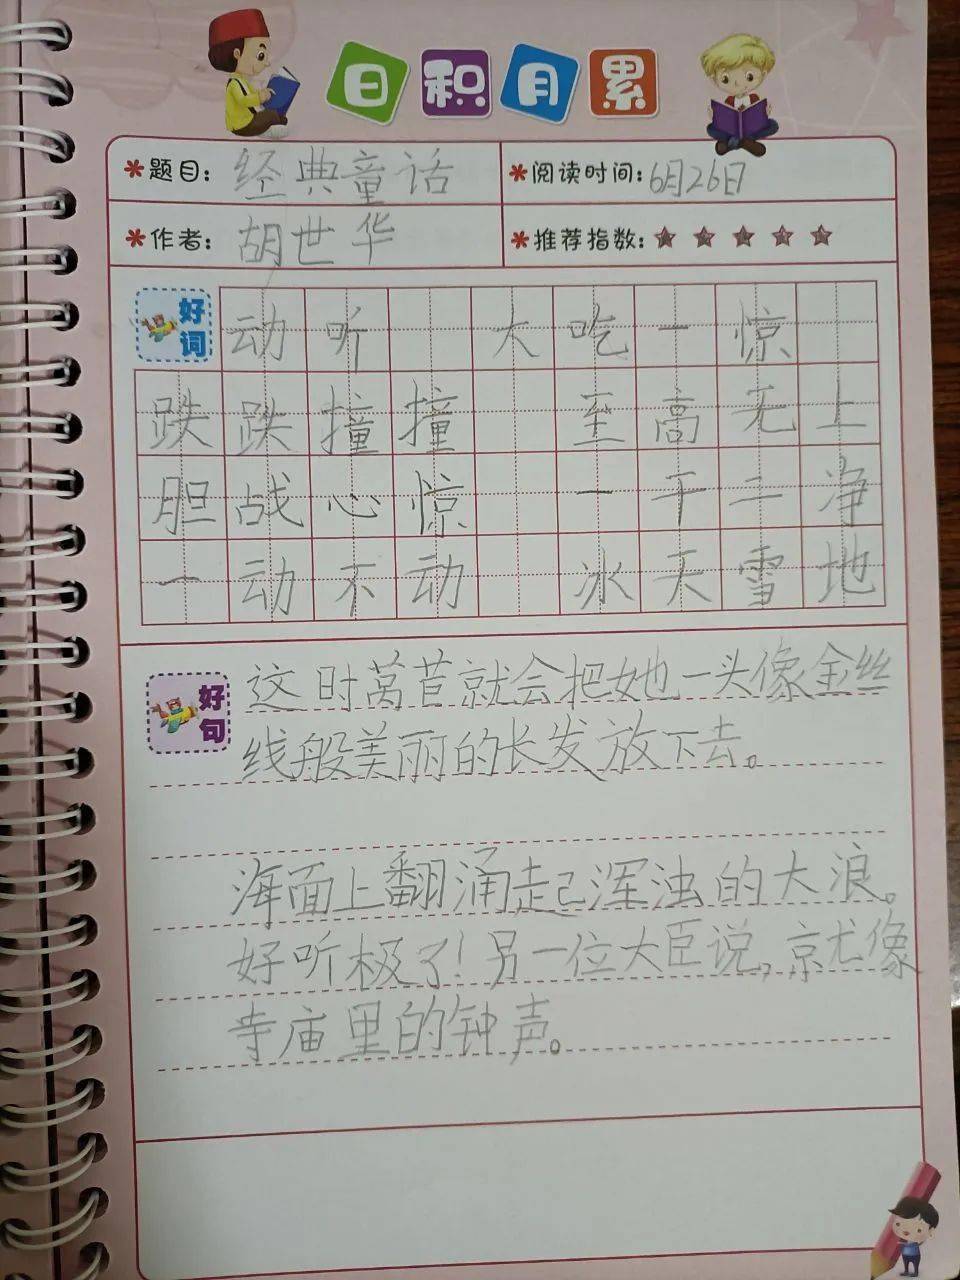 日积月累
*题目: 经典童话 *阅读时间: 6月26日
*作者: 胡世华 *推荐指数: ★ ★ ★ ★ ★
好词 动听 大吃一惊
跌跌撞撞 至高无上
胆战心惊 一干二净
一动不动 冰天雪地
好句 这时莴苣就会把她一头像金丝
线般美丽的长发放下去。
海面上翻涌起浑浊的大浪。
好听极了!另一位大臣说,京尤像
寺庙里的钟声。